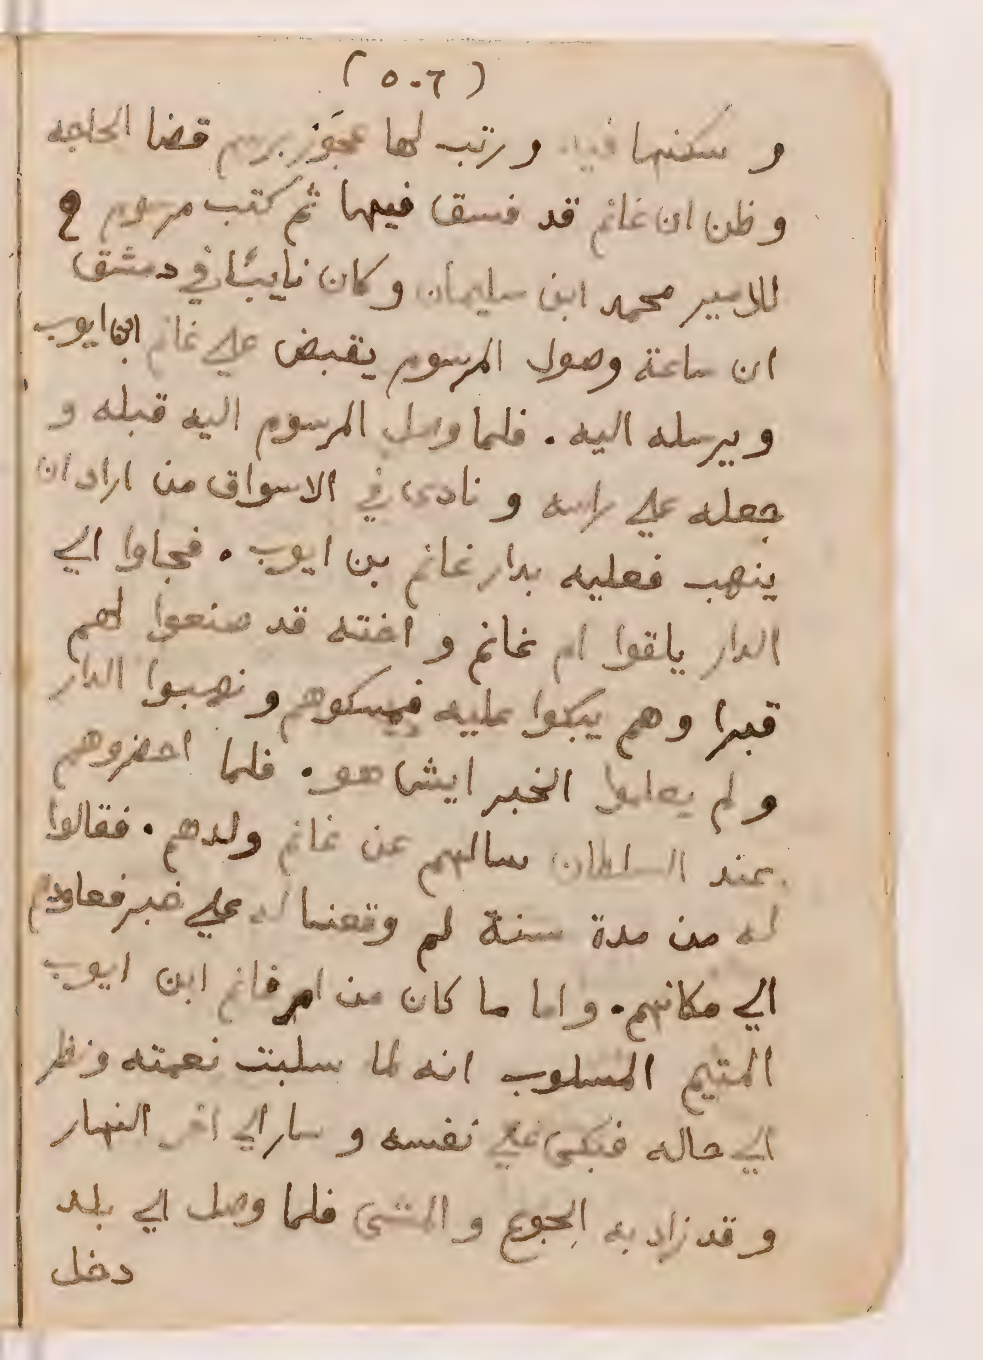 (٥٠٦)
و سكنها فيه و رتب لها عجوز برسم قضا الحاجه
و ظن ان غانم قد فسق فيها ثم كتب مرسوم
للامير محمد ابن سليمان وكان نايبًا في دمشق
ان ساعة وصول المرسوم يقبض علي غانم ابن ايوب
ويرسله اليه . فلما وصل المرسوم اليه قبله و
جعله علي راسه و نادى في الاسواق من اراد ان
ينهب فعليه بدار غانم بن ايوب . فجاوا الي
الدار يلقوا ام غانم و اخته قد صنعوا لهم
قبرا وهم يبكوا عليه فمسكوهم و نهبوا الدار
ولم يعلموا الخبر ايشا هو . فلما احضروهم
عند السلطان سالهم عن غانم ولدهم . فقالوا
له من مدة سنة لم وقعنا له علي خبر فعاودهم
الي مكانهم . واما ما كان من امر غانم ابن ايوب
المتيم المسلوب انه لما سلبت نعمته ونظر
الي حاله فبكى علي نفسه و سار الي اخر النهار
وقد زاد به الجوع و المشى فلما وصل الي بلد
دخل